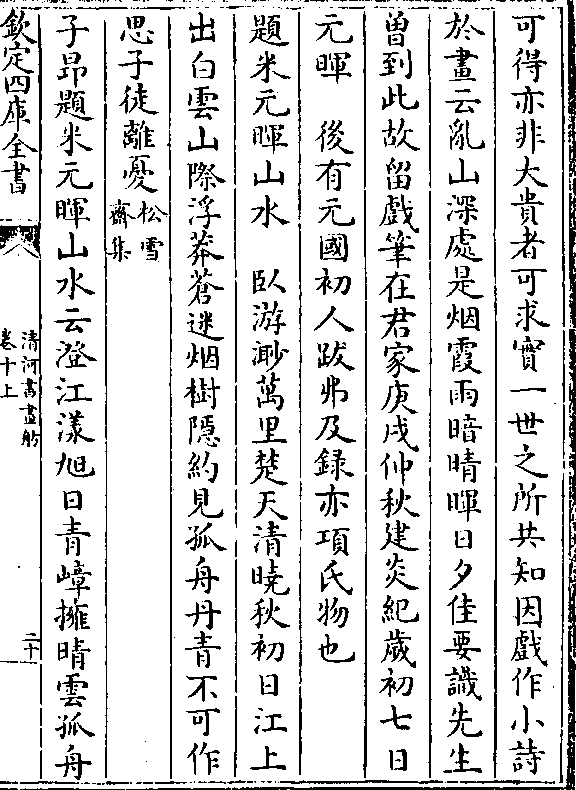 可得亦非大貴者可求實一世之所共知因戲作小詩
於畫云亂山深處是烟霞雨暗晴暉日夕佳要識先生
曽到此故留戲筆在君家庚戌仲秋建炎紀歲初七日
元暉　後有元國初人跋弗及録亦項氏物也
題米元暉山水　臥游渺萬里楚天清曉秋初日江上
出白雲山際浮莽蒼迷烟樹隱約見孤舟丹青不可作
思子徒離憂松雪齋集
子昂題米元暉山水云澄江漾旭日青嶂擁晴雲孤舟
欽定四庫全書
清河書畫舫
卷十上
二十